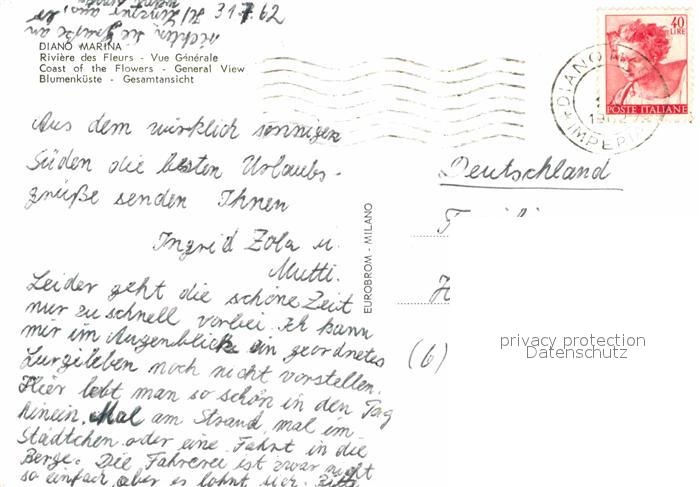 31.7.62
DIANO MARINA
Rivière des Fleurs - Vue Générale
Coast of the Flowers - General View
Blumenküste - Gesamtansicht
40
LIRE
POSTE ITALIANE
DIANO
IMPERIA
Aus dem wirklich sonnigen
Süden die besten Urlaubs-
grüße senden Ihnen
Ingrid Zola u.
Mutti.
Leider geht die schöne Zeit
nur zu schnell vorbei. Ich kann
mir im Augenblick ein geordnetes
noch nicht vorstellen.
Hier lebt man so schön in den Tag
hinein. Mal am Strand, mal im
Städtchen oder eine Fahrt in die
Berge. Die Fahrerei ist zwar nicht
so einfach, aber es lohnt sich. Bitte
EUROBROM - MILANO
Deutschland
(b)
privacy protection
Datenschutz